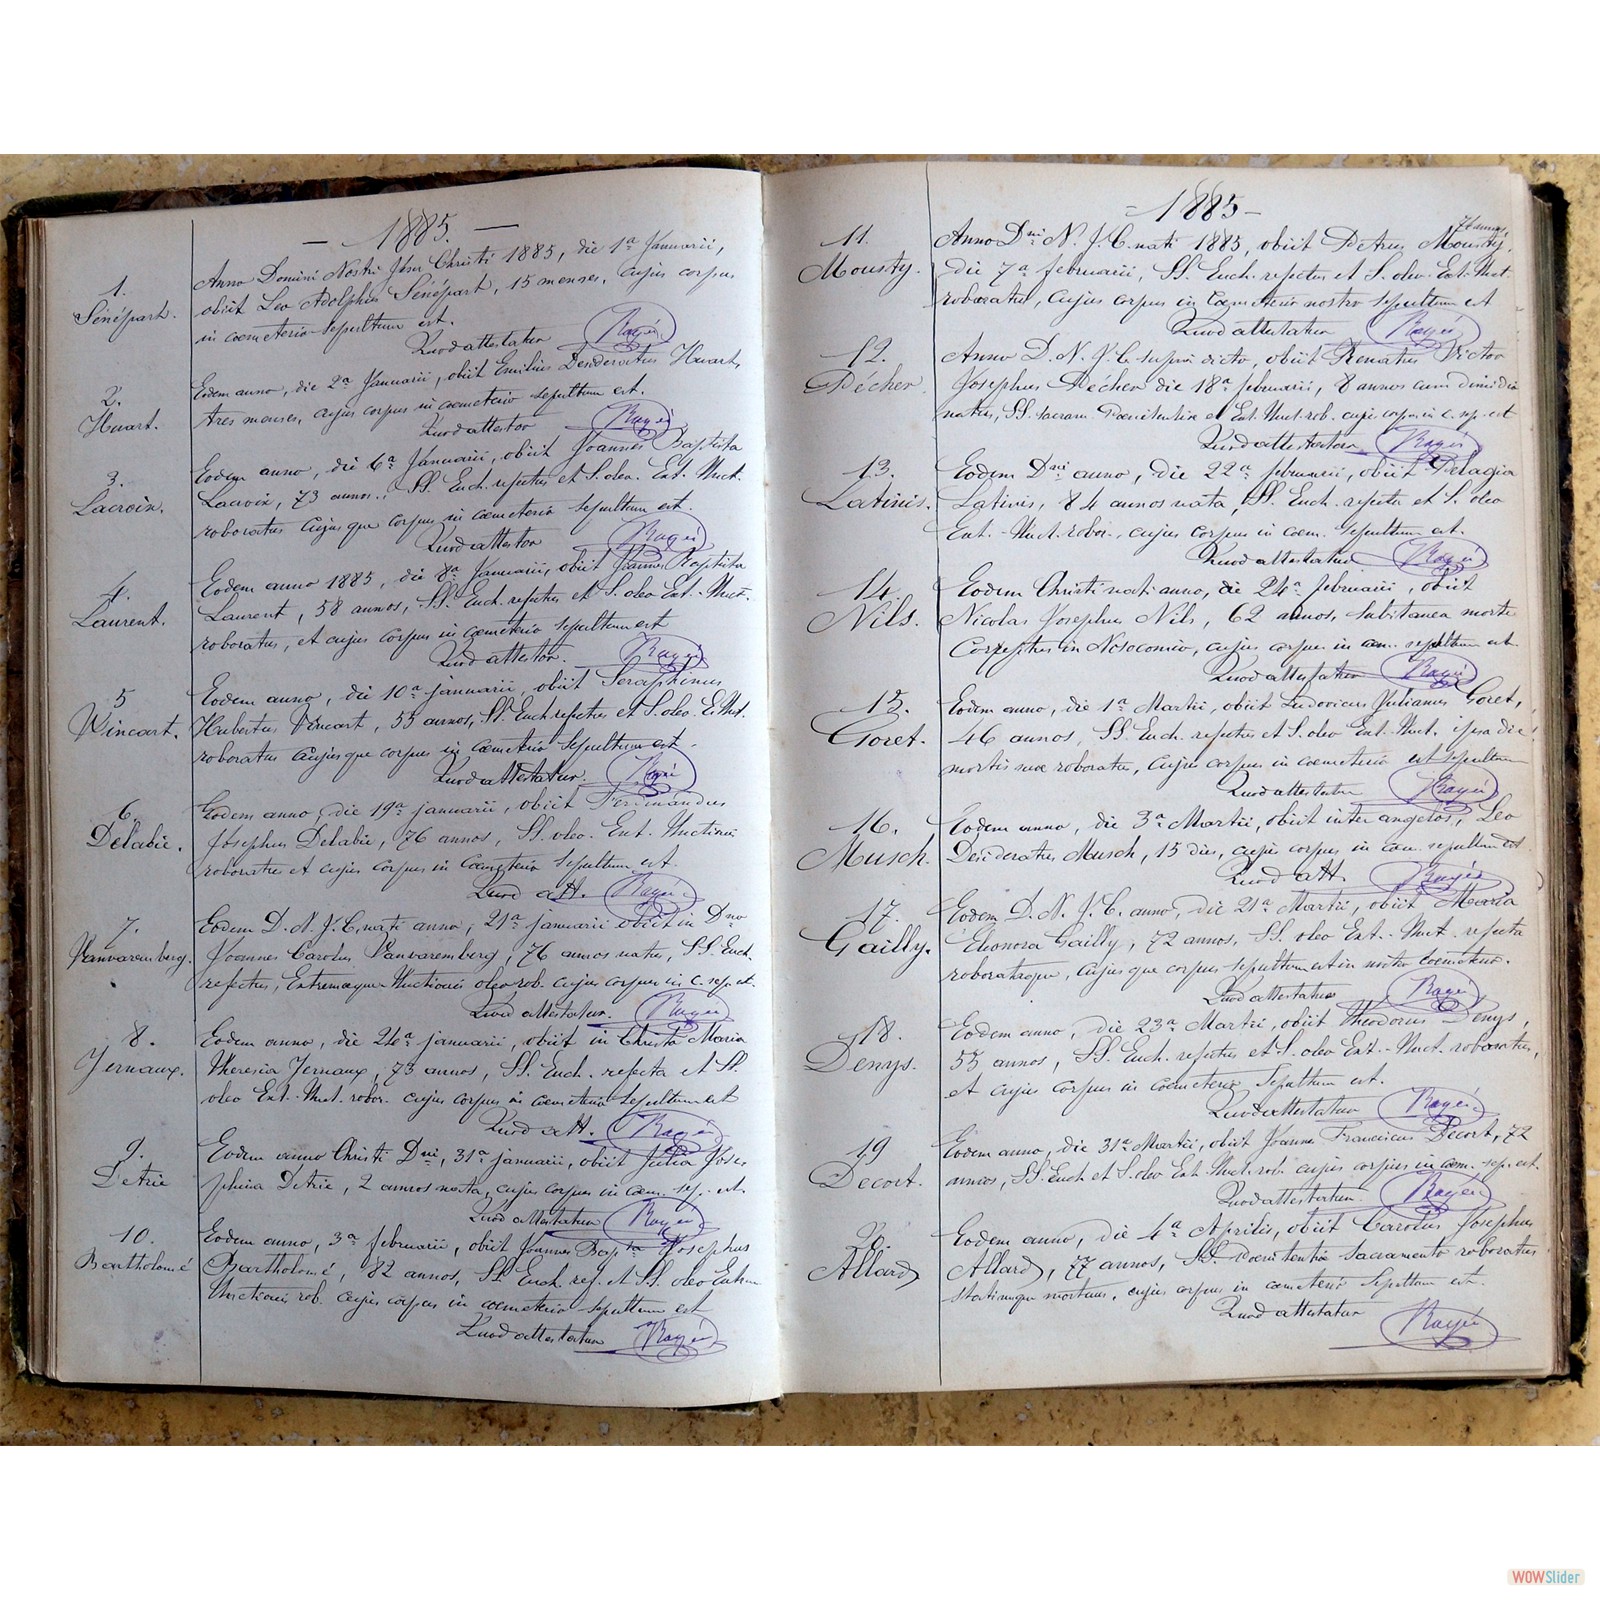 — 1885. —
1.
Sénépart.
Anno Domini Nostri Jesu Christi 1885, die 1ª Januarii,
obiit Leo Adolphus Sénépart, 15 menses, cujus corpus
in coemeterio sepultum est.
Quod attestatur
2.
Huart.
Eodem anno, die 2ª Januarii, obiit Emilius Desideratus Huart,
tres menses, cujus corpus in coemeterio sepultum est.
Quod attestor
3.
Lacroix.
Eodem anno, die 6ª Januarii, obiit Joannes Baptista
Lacroix, 73 annos, SS. Euch. refectus et S. oleo Ext. Unct.
roboratus cujusque corpus in coemeterio sepultum est.
Quod attestor
4.
Laurent.
Eodem anno 1885, die 8ª Januarii, obiit Joannes Baptista
Laurent, 58 annos, SS. Euch. refectus et S. oleo Ext. Unct.
roboratus, et cujus corpus in coemeterio sepultum est
Quod attestor.
5
Vincart.
Eodem anno, die 10ª januarii, obiit Seraphinus
Hubertus Vincart, 55 annos, SS. Euch. refectus et S. oleo E. Unct.
roboratus cujusque corpus in coemeterio sepultum est.
Quod attestatur.
6
Delabie.
Eodem anno, die 19ª januarii, obiit Ferdinandus
Josephus Delabie, 76 annos, SS. oleo Ext. Unctionis
roboratus et cujus corpus in coemeterio sepultum est.
Quod att.
7.
Vanvaremberg.
Eodem D. N. J. C. nati anno, 21ª januarii obiit in Dno
Joannes Carolus Vanvaremberg, 76 annos natus, SS. Euch.
refectus, Extremaque Unctionis oleo rob. cujus corpus in c. sep. est.
Quod attestatur.
8.
Jernaux.
Eodem anno, die 24ª januarii, obiit in Christo Maria
Theresia Jernaux, 73 annos, SS. Euch. refecta et SS.
oleo Ext. Unct. robor. cujus corpus in coemeterio sepultum est
Quod att.
9.
Detrie
Eodem anno Christi Dni, 31ª januarii, obiit Julia Jose
phina Detrie, 2 annos nata, cujus corpus in coem. sep. est.
Quod attestatur
10.
Bartholomé
Eodem anno, 3ª februarii, obiit Joannes Bapta Josephus
Bartholomé, 82 annos, SS. Euch. ref. et SS. oleo Extrem
Unctionis rob. cujus corpus in coemeterio sepultum est
Quod attestatur
= 1885 –
11.
Mousty.
76 annos,
Anno Dni N. J. C. nati 1885, obiit Petrus Mousty,
die 7ª februarii, SS. Euch. refectus et S. oleo Ext. Unct.
roboratus, cujus corpus in coemeterio nostro sepultum est
Quod attestatur
12.
Pécher.
Anno D. N. J. C. supra dicto, obiit Renatus Victor
Josephus Pécher die 18ª februarii, 8 annos cum dimidio
natus, SS. sacram. Poenitentiae et Ext. Unct. rob. cujus corpus in c. sep. est
Quod attestatur
13.
Latinis.
Eodem Dni anno, die 22ª februarii, obiit Pelagia
Latinis, 84 annos nata, SS. Euch. refecta et S. oleo
Ext. Unct. robor., cujus corpus in coem. sepultum est.
Quod attestatur
14.
Nils.
Eodem Christi nati anno, die 24ª februarii, obiit
Nicolas Josephus Nils, 62 annos, subitanea morte
correptus in Nosocomio, cujus corpus in coem. sepultum est.
Quod attestatur
15.
Goret.
Eodem anno, die 1ª Martii, obiit Ludovicus Julianus Goret,
46 annos, SS. Euch. refectus et S. oleo Ext. Unct. ipsa die
mortis suae roboratus, cujus corpus in coemeterio est sepultum
Quod attestatur
16.
Musch.
Eodem anno, die 3ª Martii, obiit inter angelos, Leo
Desideratus Musch, 15 dies, cujus corpus in coem. sepultum est.
Quod att.
17.
Gailly.
Eodem D. N. J. C. anno, die 21ª Martii, obiit Maria
Eleonora Gailly, 72 annos, SS. oleo Ext. Unct. refecta
roborataque, cujusque corpus sepultum est in nostro coemeterio.
Quod attestatur
18.
Denys.
Eodem anno, die 23ª Martii, obiit Theodorus Denys,
53 annos, SS. Euch. refectus et S. oleo Ext. Unct. roboratus,
et cujus corpus in coemeterio sepultum est.
Quod attestatur
19
Decort.
Eodem anno, die 31ª Martii, obiit Joannes Franciscus Decort, 72
annos, SS. Euch. et S. oleo Ext. Unct. rob. cujus corpus in coem. sep. est.
Quod attestatur.
20.
Allard
Eodem anno, die 4ª Aprilis, obiit Carolus Josephus
Allard, 77 annos, SS. Poenitentiae Sacramento roboratus
statimque mortuus, cujus corpus in coemeterio sepultum est.
Quod attestatur
WOWSlider